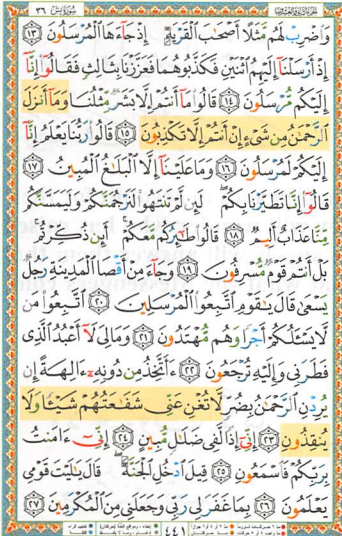 سورة يس ٣٦
وَٱضْرِبْ لَهُم مَّثَلًا أَصْحَٰبَ ٱلْقَرْيَةِ إِذْ جَآءَهَا ٱلْمُرْسَلُونَ ١٣
إِذْ أَرْسَلْنَآ إِلَيْهِمُ ٱثْنَيْنِ فَكَذَّبُوهُمَا فَعَزَّزْنَا بِثَالِثٍ فَقَالُوٓا۟ إِنَّآ
إِلَيْكُم مُّرْسَلُونَ ١٤ قَالُوا۟ مَآ أَنتُمْ إِلَّا بَشَرٌ مِّثْلُنَا وَمَآ أَنزَلَ
ٱلرَّحْمَٰنُ مِن شَىْءٍ إِنْ أَنتُمْ إِلَّا تَكْذِبُونَ ١٥ قَالُوا۟ رَبُّنَا يَعْلَمُ إِنَّآ
إِلَيْكُمْ لَمُرْسَلُونَ ١٦ وَمَا عَلَيْنَآ إِلَّا ٱلْبَلَٰغُ ٱلْمُبِينُ ١٧
قَالُوٓا۟ إِنَّا تَطَيَّرْنَا بِكُمْ لَئِن لَّمْ تَنتَهُوا۟ لَنَرْجُمَنَّكُمْ وَلَيَمَسَّنَّكُم
مِّنَّا عَذَابٌ أَلِيمٌ ١٨ قَالُوا۟ طَٰٓئِرُكُم مَّعَكُمْ أَئِن ذُكِّرْتُم
بَلْ أَنتُمْ قَوْمٌ مُّسْرِفُونَ ١٩ وَجَآءَ مِنْ أَقْصَا ٱلْمَدِينَةِ رَجُلٌ
يَسْعَىٰ قَالَ يَٰقَوْمِ ٱتَّبِعُوا۟ ٱلْمُرْسَلِينَ ٢٠ ٱتَّبِعُوا۟ مَن
لَّا يَسْـَٔلُكُمْ أَجْرًا وَهُم مُّهْتَدُونَ ٢١ وَمَا لِىَ لَآ أَعْبُدُ ٱلَّذِى
فَطَرَنِى وَإِلَيْهِ تُرْجَعُونَ ٢٢ ءَأَتَّخِذُ مِن دُونِهِۦٓ ءَالِهَةً إِن
يُرِدْنِ ٱلرَّحْمَٰنُ بِضُرٍّ لَّا تُغْنِ عَنِّى شَفَٰعَتُهُمْ شَيْـًٔا وَلَا
يُنقِذُونِ ٢٣ إِنِّىٓ إِذًا لَّفِى ضَلَٰلٍ مُّبِينٍ ٢٤ إِنِّىٓ ءَامَنتُ
بِرَبِّكُمْ فَٱسْمَعُونِ ٢٥ قِيلَ ٱدْخُلِ ٱلْجَنَّةَ قَالَ يَٰلَيْتَ قَوْمِى
يَعْلَمُونَ ٢٦ بِمَا غَفَرَ لِى رَبِّى وَجَعَلَنِى مِنَ ٱلْمُكْرَمِينَ ٢٧
٤٤١